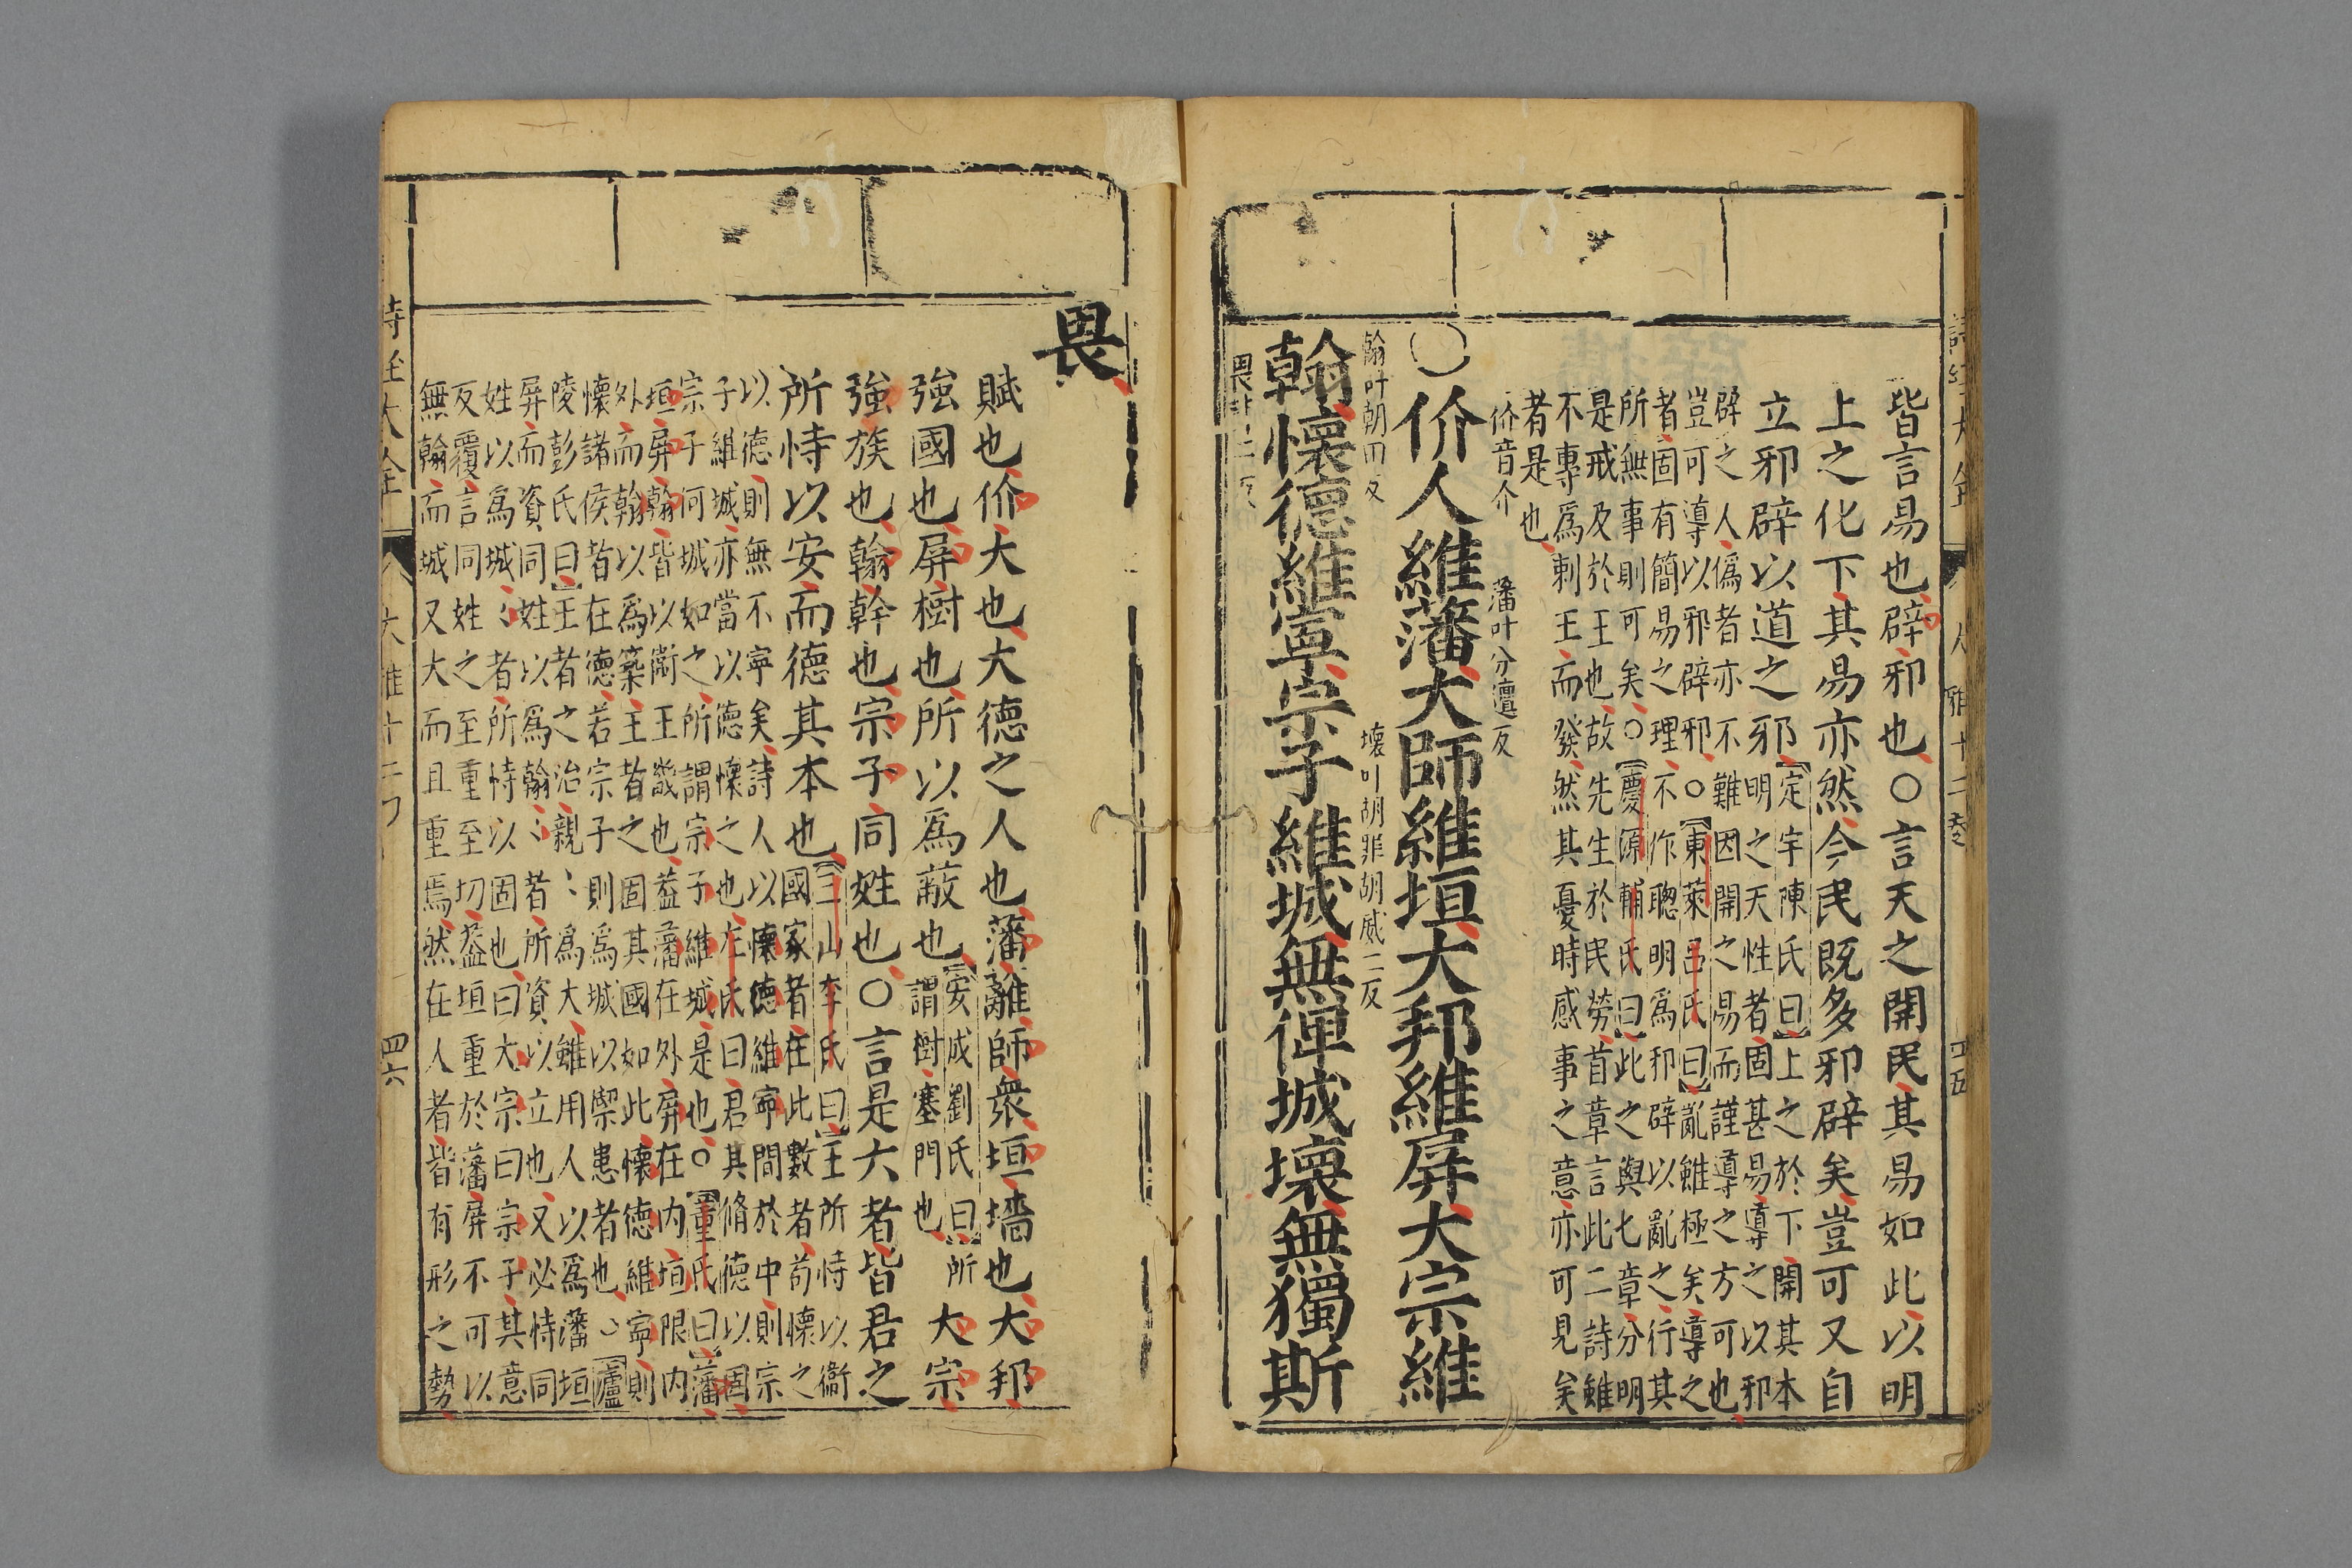 皆言易也辟邪也○言天之開民其易如此以明
上之化下其易亦然今民既多邪辟矣豈可又自
立邪辟以道之邪
【定宇陳氏曰】上之於下開其本
明之天性者固甚易導之以邪
辟之人僞者亦不難因開之易而謹導之方可也
豈可導以邪辟邪○【東萊呂氏曰】亂雖極矣導之
者固有簡易之理不作聰明爲邪辟以亂之行其
所無事則可矣○【慶源輔氏曰】此之輿七章分明
是戒及於王也故先生於民勞首章言此二詩雖
不專爲刺王而發然其憂時感事之意亦可見矣
者是也
价音介 藩叶分邅反
○价人維藩大師維垣大邦維屏大宗維
翰叶胡田反 壞叶胡罪胡威二反
翰懷德維寧宗子維城無俾城壞無獨斯
畏
賦也价大也大德之人也藩籬師衆垣墻也大邦
強國也屏樹也所以爲蔽也
【安成劉氏曰】所
謂樹塞門也
大宗
強族也翰幹也宗子同姓也○言是六者皆君之
所恃以安而德其本也
【三山李氏曰】王所恃以衞
國家者在此數者苟懷之
以德則無不寧矣詩人以懷德維寧間於中則宗
子維城亦當以德懷之也左氏曰君其脩德以固
宗子何城如之所謂宗子維城是也○【董氏曰】藩
垣屏翰皆以衞王畿也葢藩在外屏在内垣限内
外而翰以爲築王者之固其國如此懷德維寧則
懷諸侯者在德若宗子則爲城以禦患者也○【廬
陵彭氏曰】王者之治親〻爲大雖用人以爲藩垣
屏而資同姓以爲翰〻者所資以立也又必恃同
姓以爲城〻者所恃以固也曰大宗曰宗子其意
反覆言同姓之至重至切葢垣重於藩屏不可以
無翰而城又大而且重焉然在人者皆有形之勢
大雅十二
四六